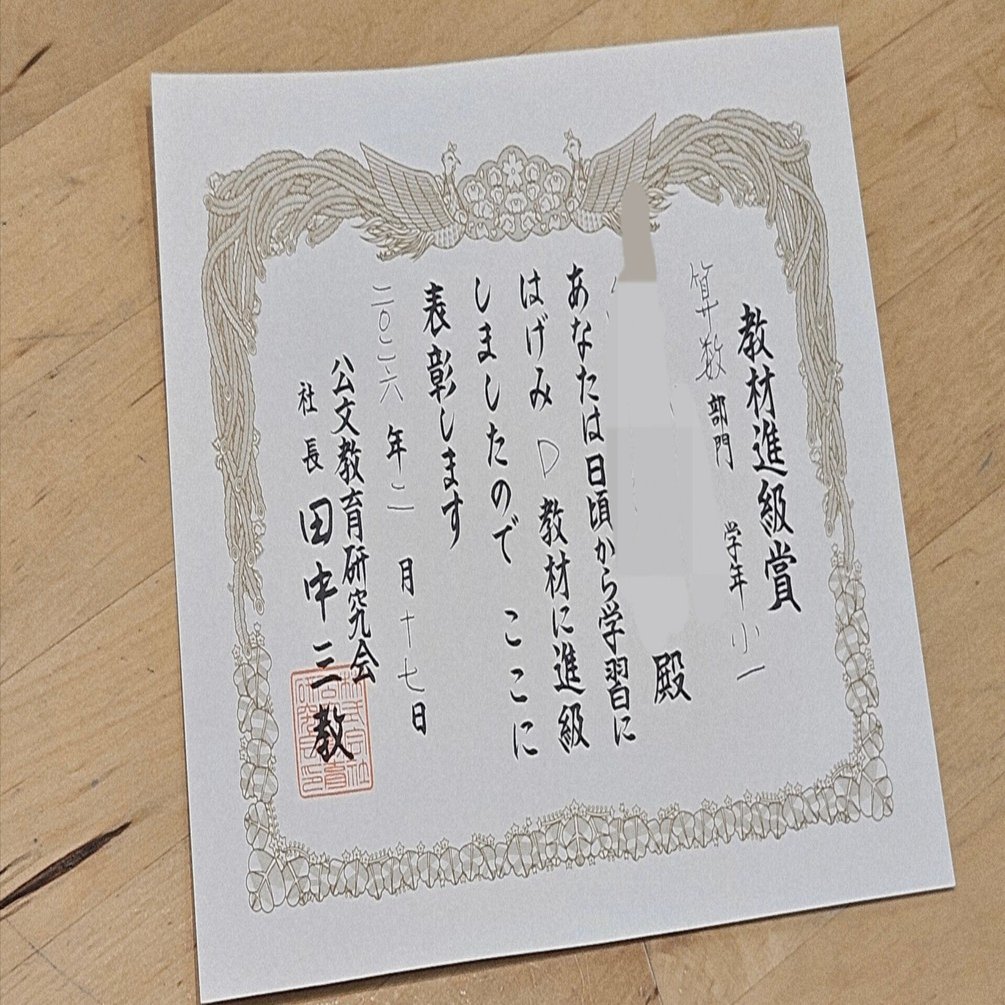 教材進級賞
算数部門 学年 小一
殿
あなたは日頃から学習に
はげみ D 教材に進級
しましたので ここに
表彰します
二〇二六年 二月 十七日
公文教育研究会
社長 田中三教